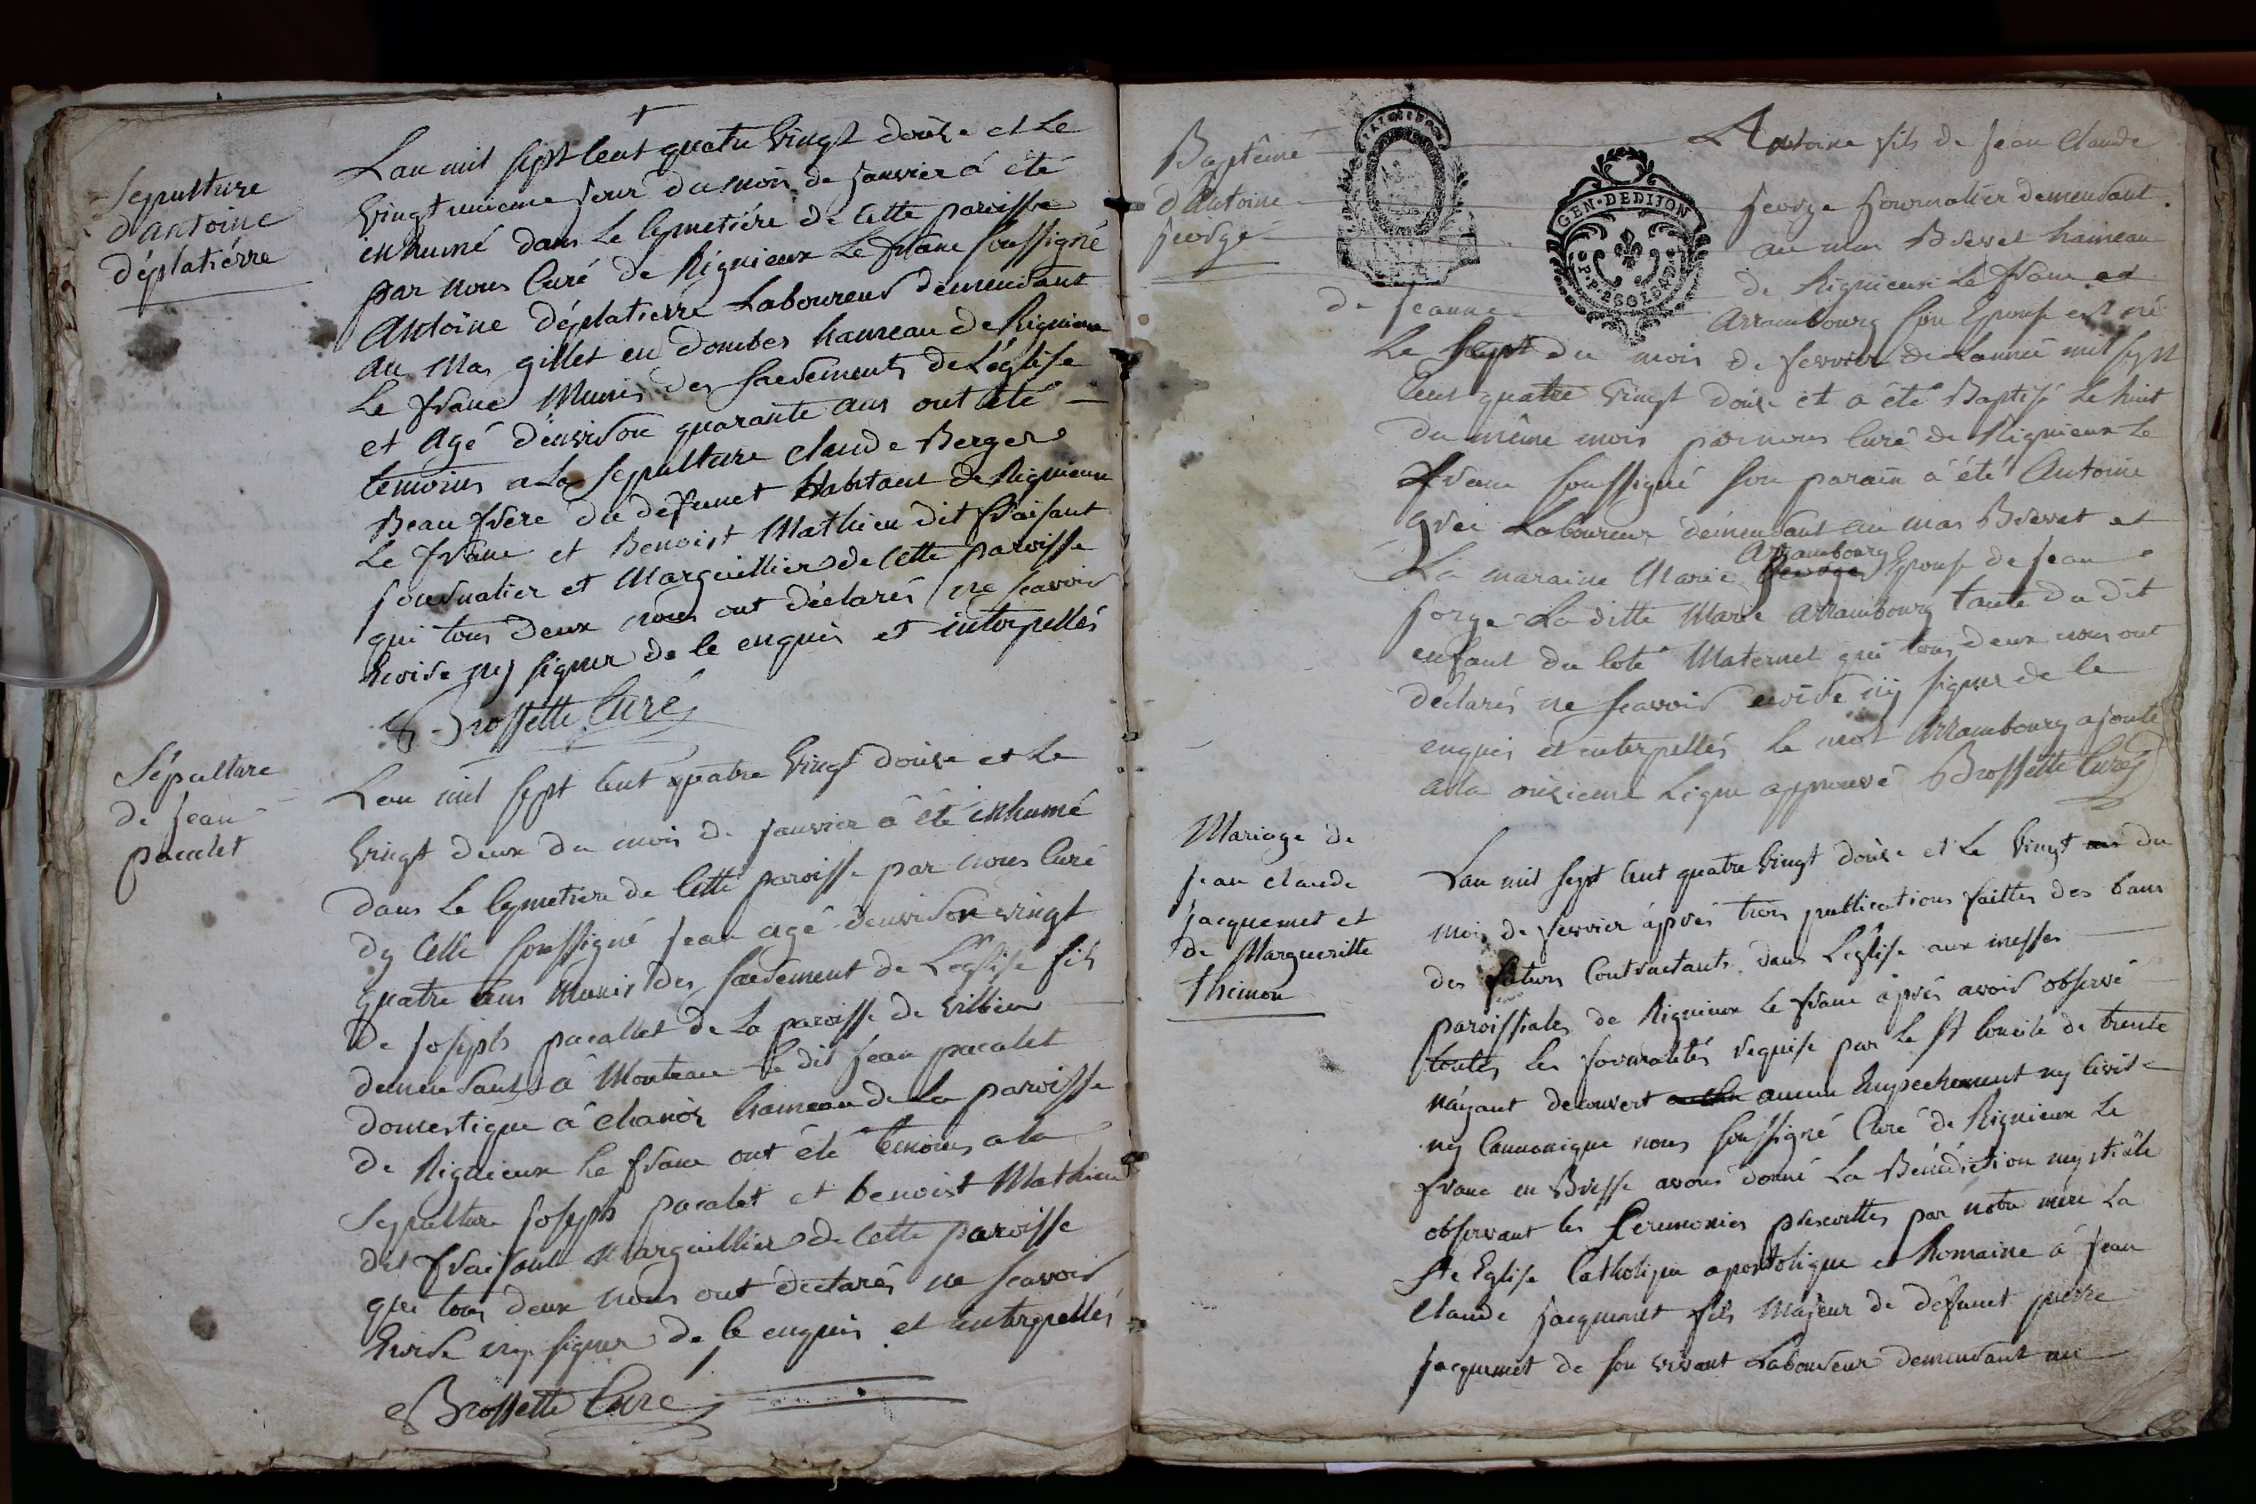 Sepulture
d'antoine
déplatiérre
Lan mil sept cent quatre vingt douze et Le
vingt unieme jour du mois de janvier à été
inhumé dans Le Cymetiére de Cette paroisse
par nous Curé de Rignieux Le franc soussigné
Antoine déplatierre Laboureur demeurant
au Mas gillet en dombes hameau de Rignieux
Le franc Munis des sacrements de L'église
et Agé d'environ quarante ans ont été
temoins a La sepulture claude Berger
Beau frere du defunct habitant de Rignieux
Le franc et Benoist Mathieu dit fraisant
journalier et Marguillier de Cette paroisse
qui tous deux nous ont déclarés ne scavoir
Ecrire ny signer de Ce enquis et interpellés
Brossette Curé
Sépulture
de jean
pacalet
Lan mil sept cent quatre vingt douze et Le
vingt deux du mois de janvier à été inhumé
dans Le Cymetiere de Cette paroisse par nous Curé
dy Celle soussigné jean agé denviron vingt
quatre ans Munis des sacrement de L'eglise fils
de joseph pacallet de La paroisse de villieu
demeurant à Monteau Le dit jean pacalet
domestique à chanoz hameau de La paroisse
de Rignieux Le franc ont été temoins a la
Sepulture joseph pacalet et benoist Mathieu
dit fraisant Marguillier de Cette paroisse
qui tous deux nous ont declarés ne scavoir
Ecrire ny signer de Ce enquis et interpellés
Brossette Curé
Baptême
d'Antoine
jeorge
GEN. DE DIJON
Antoine fils de jean Claude
jeorge journalier demeurant
au mas Brevet hameau
de Rignieux Le franc et
de jeanne Arrambourg son Epouse est né
Le sept du mois de fevrier de Lannée mil sept
Cent quatre vingt douze et a été Baptisé Le huit
du même mois par nous Curé de Rignieux Le
franc soussigné son parain à été Antoine
Laboureur demeurant au mas Brevet et
Arrambourg
La maraine Marie jeorge Epouse de jean
jorge La ditte Marie Arrambourg tante du dit
enfant du Coté Maternel qui tous deux nous ont
déclarés ne scavoir ecrire ny signer de Ce
enquis et interpellés Le mot Arrambourg ajouté
a la onzieme Ligne approuvé Brossette Curé
Mariage de
jean claude
jacquemet et
de Margueritte
thenon
Lan mil sept cent quatre vingt douze et Le vingt du
mois de fevrier après trois publications faittes des bans
des futurs Contractants dans L'eglise aux messes
paroissiales de Rignieux Le franc après avoir observé
toutes Les formalités requise par Le St Concile de trente
n'ayant decouvert aucun Empechement ny Civil
ny Cannonique nous soussigné Curé de Rignieux Le
franc en Bresse avons donné La Bénédiction nuptiale
observant les Ceremonies prescrittes par notre mere La
Ste Eglise Catholique apostolique et Romaine à jean
Claude jacquemet fils Majeur de défunct pierre
jacquemet de son vivant Laboureur demeurant au